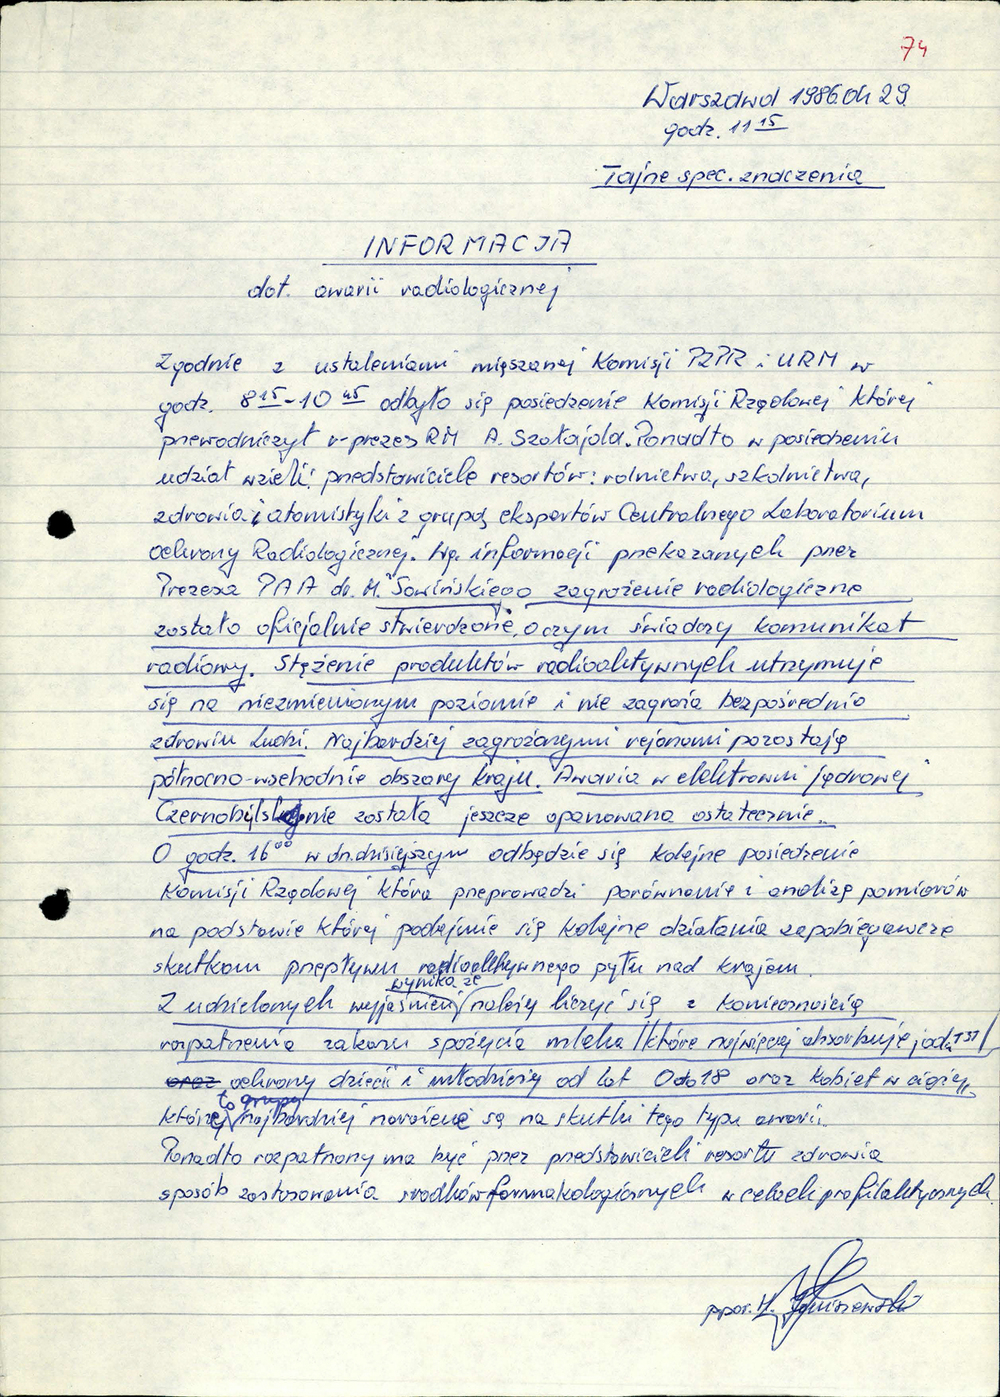 74
Warszawa 1986.04.29.
godz. 11 15
Tajne spec. znaczenia
INFORMACJA
dot. awarii radiologicznej
Zgodnie z ustaleniami mięszanej Komisji PZPR i URM w
godz. 8 15 - 10 45 odbyło się posiedzenie Komisji Rządowej której
przewodniczył v-prezes RM A. Szałajda. Ponadto w posiedzeniu
udział wzieli przedstawiciele resortów: rolnictwa, szkolnictwa,
zdrowia i atomistyki z grupą ekspertów Centralnego Laboratorium
Ochrony Radiologicznej. Wg. informacji przekazanych przez
Prezesa PAA dr. M. Sowińskiego zagrożenie radiologiczne
zostało oficjalnie stwierdzone, o czym świadczy komunikat
radiowy. Stężenie produktów radioaktywnych utrzymuje
się na niezmienionym poziomie i nie zagraża bezpośrednio
zdrowiu ludzi. Najbardziej zagrożonymi rejonami pozostają
północno-wschodnie obszary kraju. Awaria w elektrowni jądrowej
Czernobylsk nie została jeszcze opanowana ostatecznie.
O godz. 16 00 w dn. dzisiejszym odbędzie się kolejne posiedzenie
Komisji Rządowej która przeprowadzi porównanie i analizę pomiarów
na podstawie której podejmie się kolejne działania zapobiegawcze
skutkom przepływu radioaktywnego pyłu nad krajem.
wynika że
Z udzielonych wyjaśnień należy liczyć się z koniecznością
rozpatrzenia zakazu spożycia mleka /które najwięcej absorbuje jodu 131/
oraz ochrony dzieci i młodzieży od lat 0 do 18 oraz kobiet w ciąży,
to grupy
które najbardziej narażone są na skutki tego typu awarii.
Ponadto rozpatrzony ma być przez przedstawicieli resortu zdrowia
sposób zastosowania środków farmakologicznych w celach profilaktycznych
ppor. H.